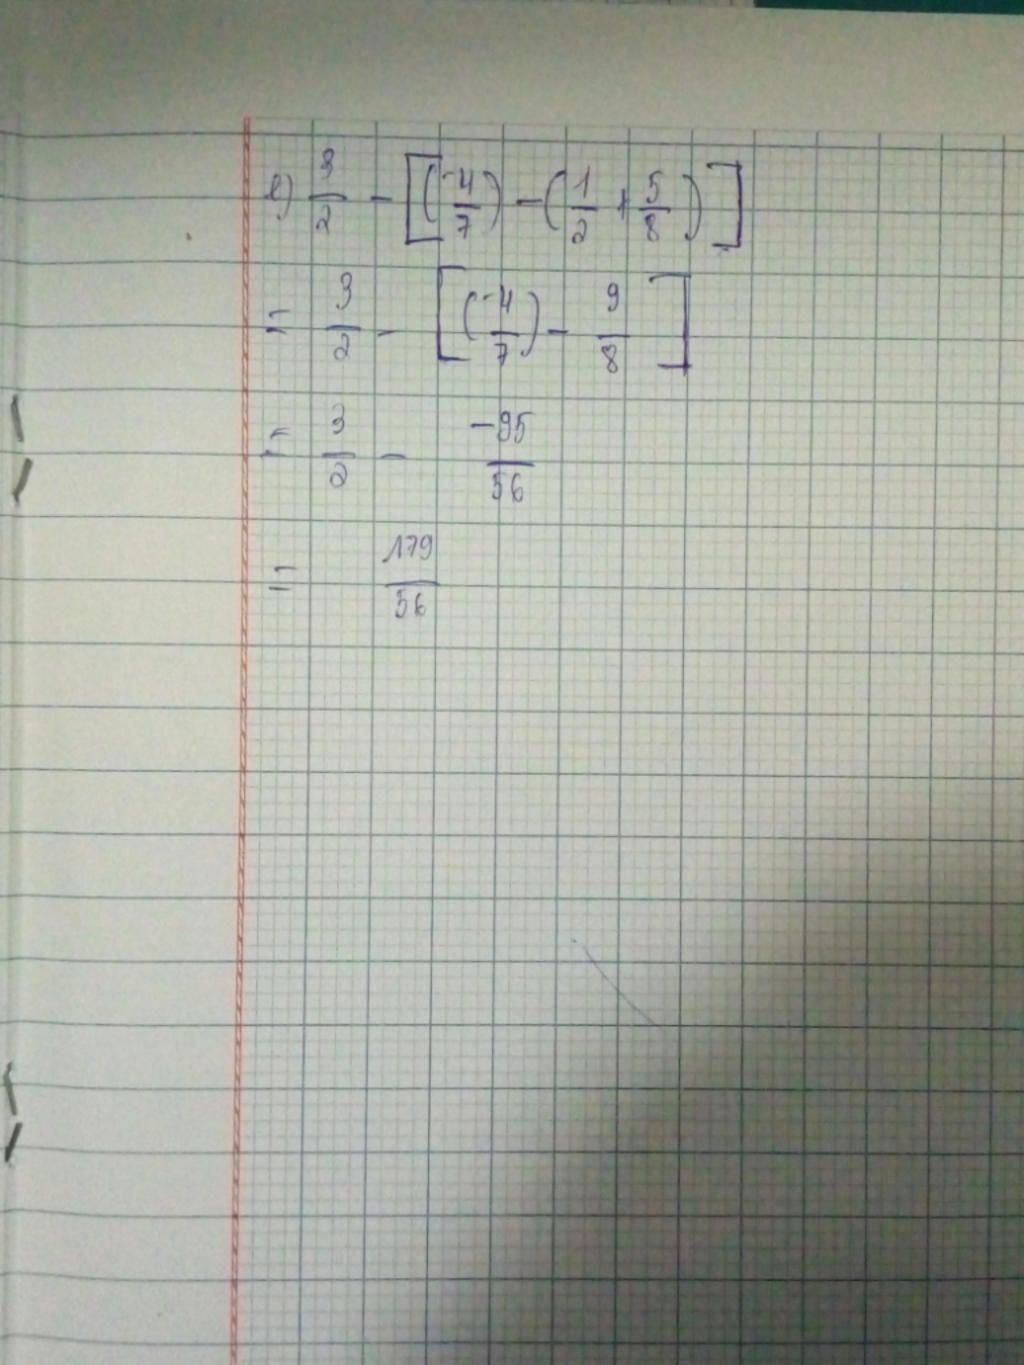 e) 3/2 - [(-4/7) - (1/2 + 5/8)]
= 3/2 - [(-4/7) - 9/8]
= 3/2 - -95/56
= 179/56